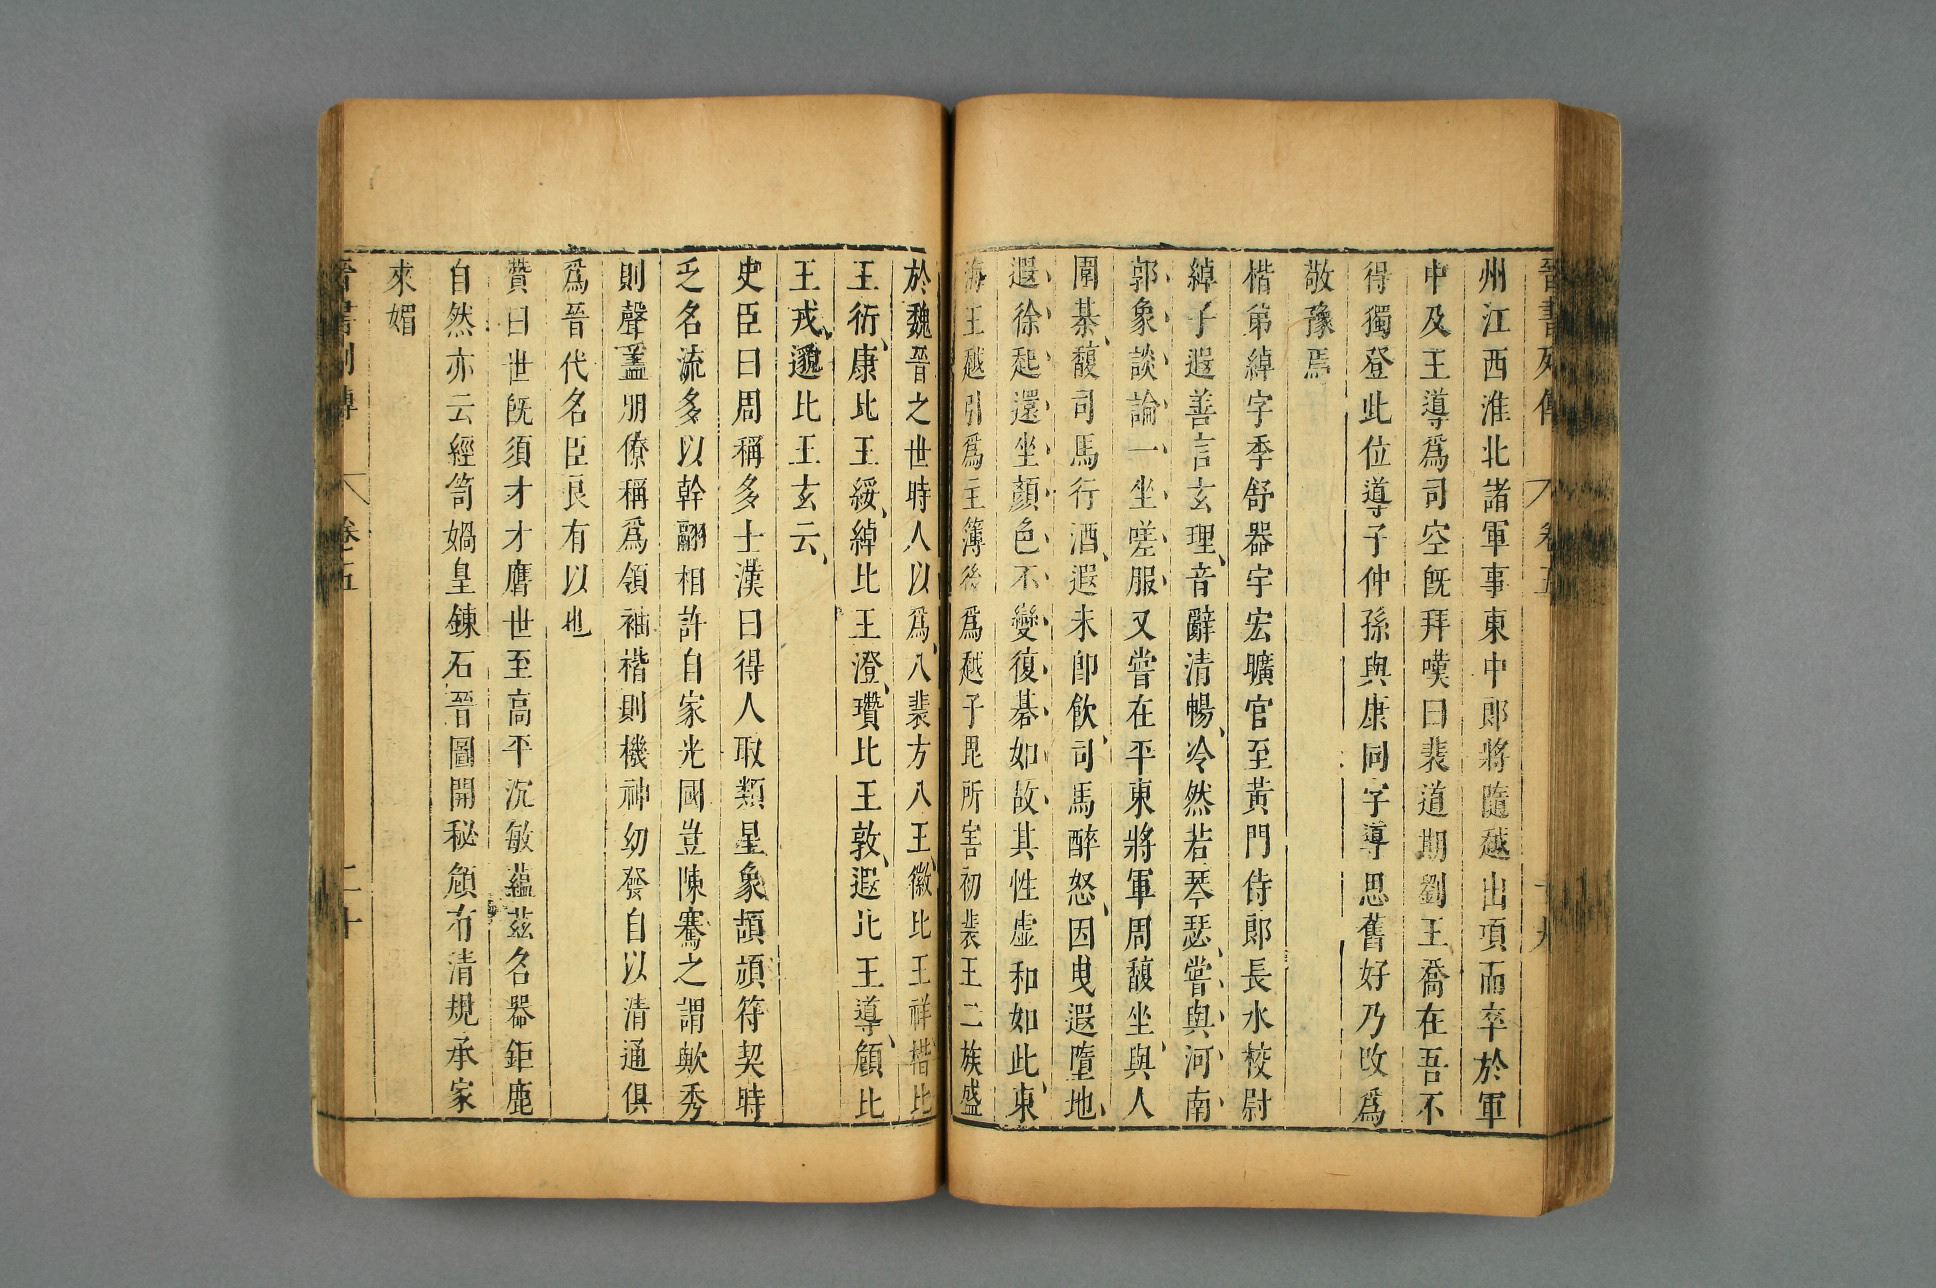 晉書列傳 卷五
州江西淮北諸軍事東中郎將隨越出項而卒於軍
中及王導爲司空旣拜嘆曰裴道期劉王喬在吾不
得獨登此位導子仲孫與康同字導思舊好乃改爲
敬豫焉
楷弟綽字季舒器宇宏曠官至黃門侍郎長水校尉
綽子遐善言玄理音辭清暢冷然若琴瑟嘗與河南
郭象談論一坐嗟服又嘗在平東將軍周馥坐與人
圍棊馥司馬行酒遐未卽飲司馬醉怒因曳遐墮地
遐徐起還坐顏色不變復碁如故其性虛和如此東
海王越引爲主簿後爲越子毘所害初裴王二族盛
於魏晉之世時人以爲八裴方八王徽比王祥楷比
王衍康比王綏綽比王澄瓚比王敦遐比王導頠比
王戎邈比王玄云
史臣曰周稱多士漢曰得人取類星象頡頏符契時
乏名流多以幹翮相許自家光國豈陳騫之謂歟秀
則聲蓋朋僚稱爲領袖楷則機神幼發自以清通俱
爲晉代名臣良有以也
贊曰世旣須才才膺世至高平沉敏蘊茲名器鉅鹿
自然亦云經笥媧皇鍊石晉圖開秘頠有清規承家
來媚
晉書列傳 卷五 二十